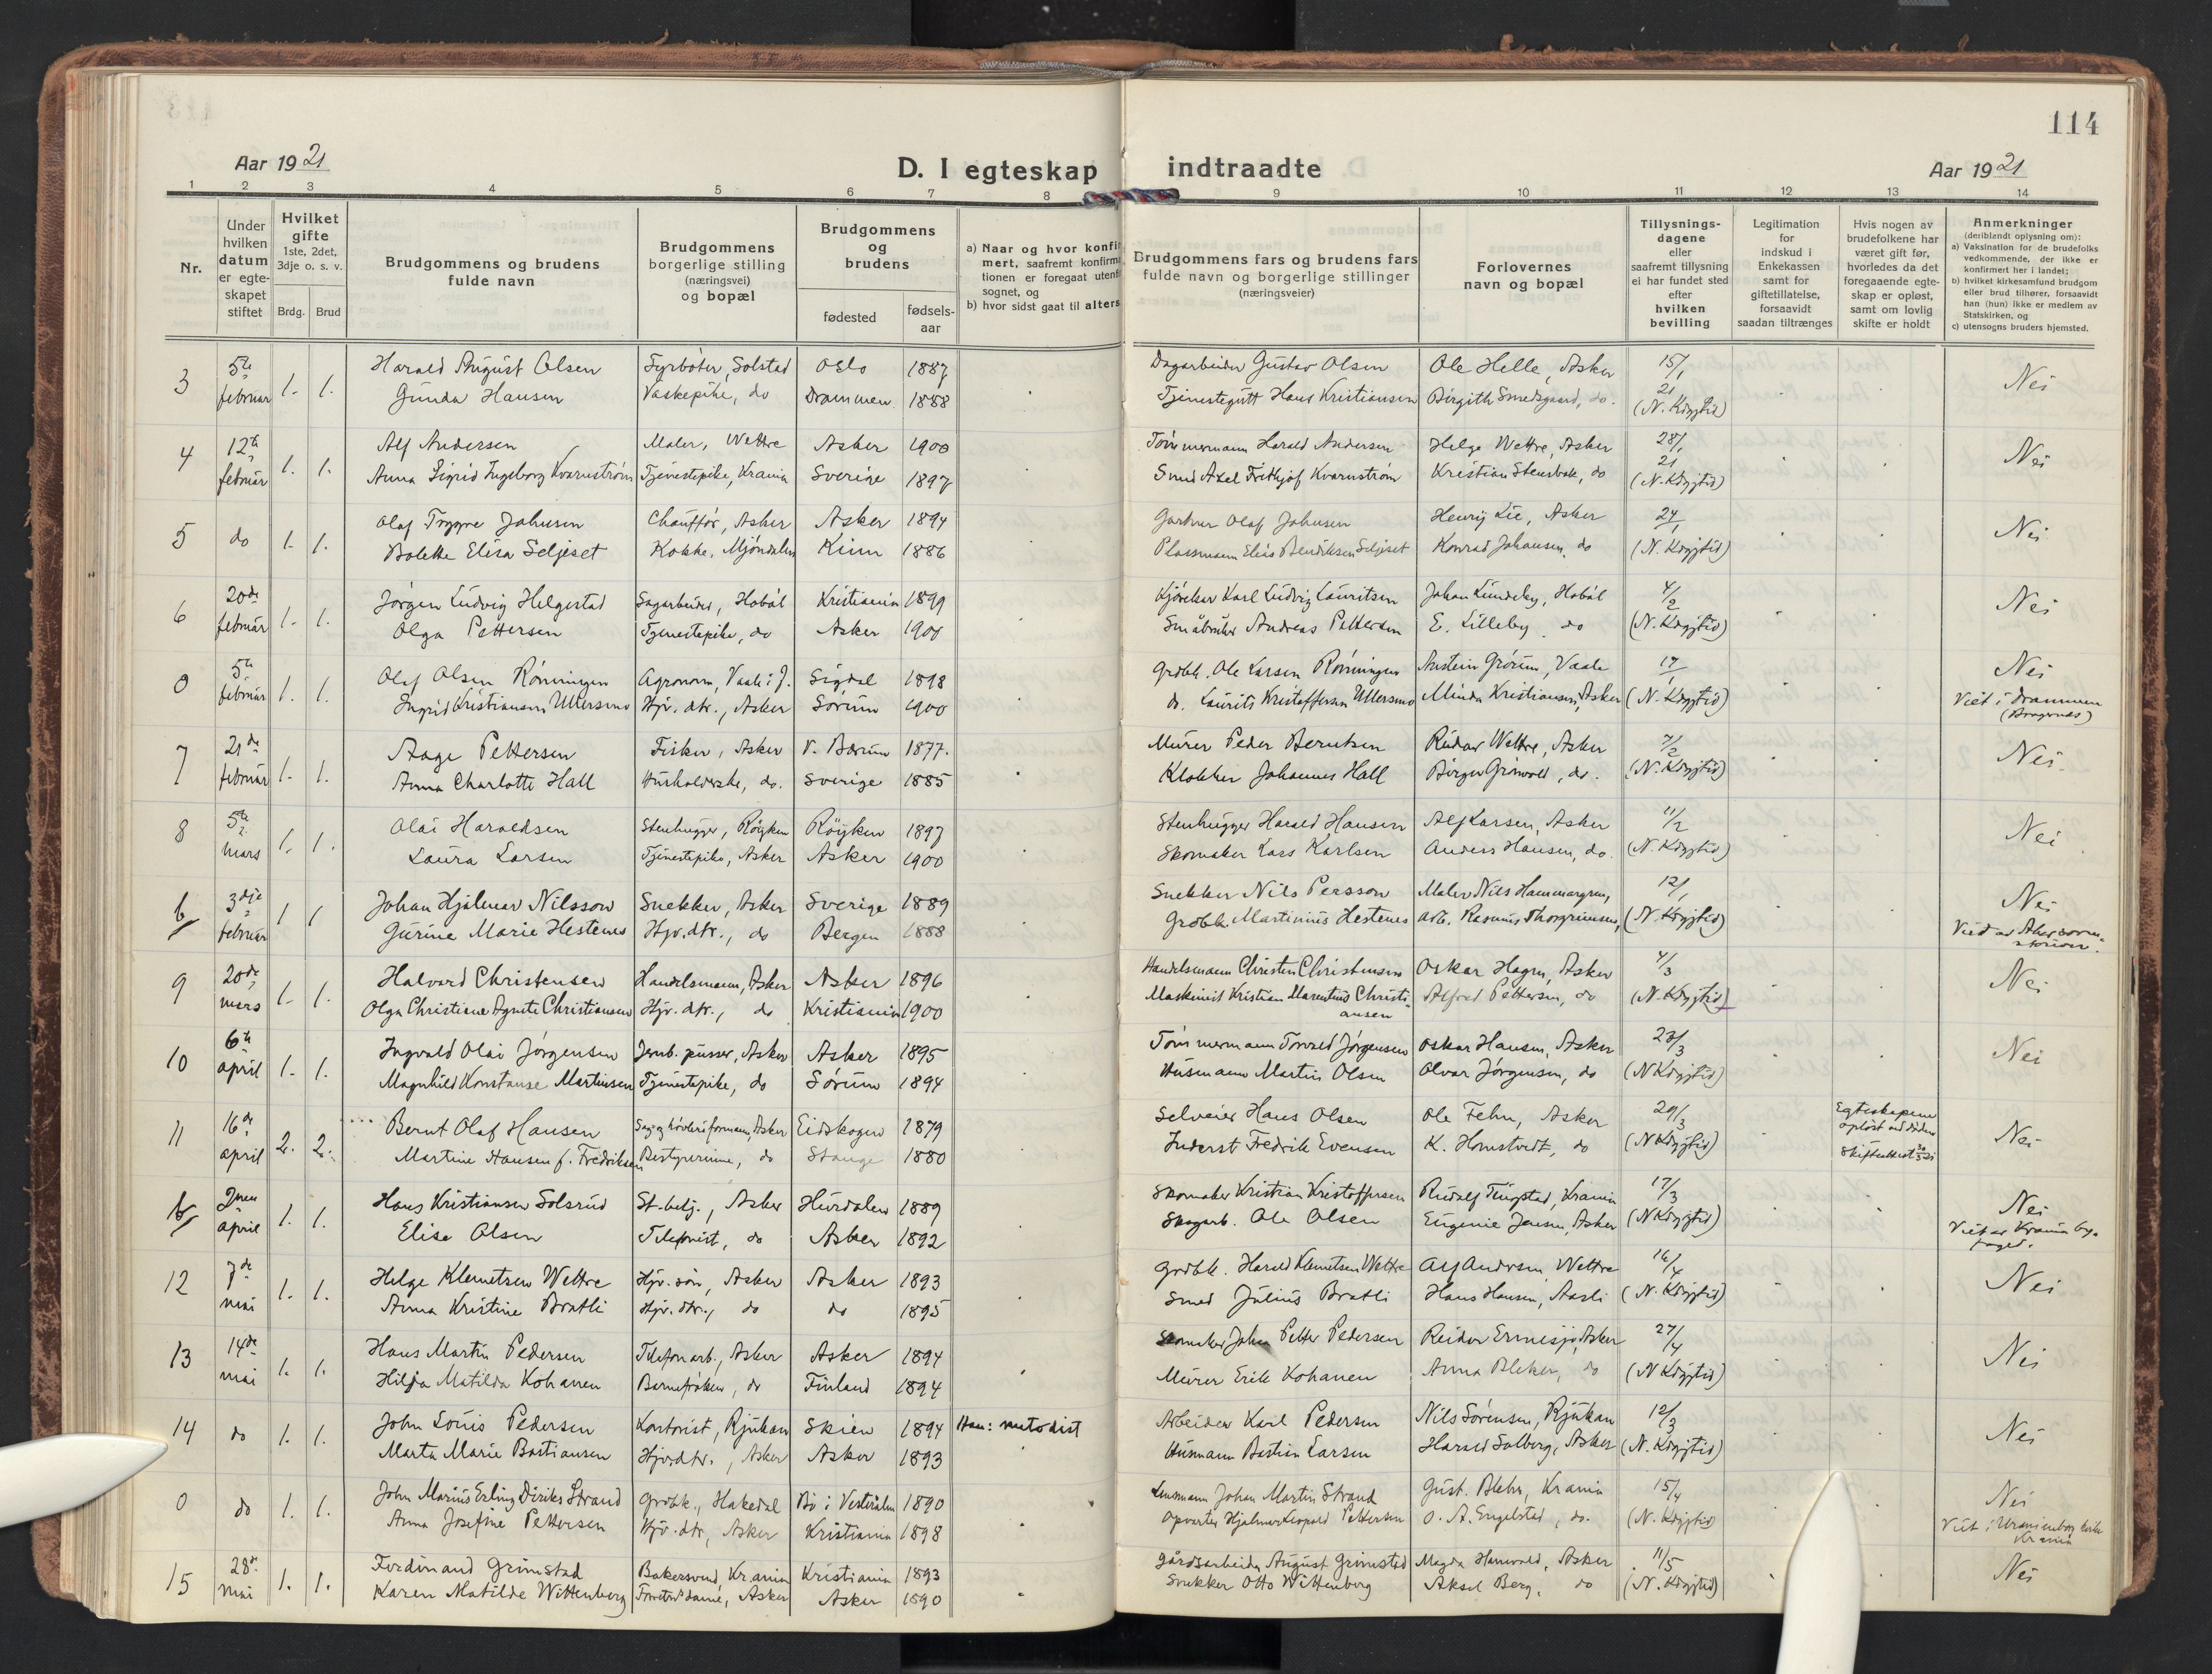 114
Aar 1921
D. I egteskap indtraadte
Aar 1921
1 2 3 4 5 6 7 8 9 10 11 12 13 14
Nr.
Under hvilken datum er egte-skapet stiftet
Hvilket gifte 1ste, 2det, 3dje o. s. v.
Brdg. Brud
Brudgommens og brudens fulde navn
Brudgommens borgerlige stilling (næringsvei) og bopæl
Brudgommens og brudens
fødested
fødsels-aar
a) Naar og hvor konfir
mert, saafremt konfirma
tionen er foregaat utenfo
sognet, og
b) hvor sidst gaat til alters
Brudgommens fars og brudens fars fulde navn og borgerlige stillinger (næringsveier)
Forlovernes navn og bopæl
Tillysnings-dagene eller saafremt tillysning ei har fundet sted efter hvilken bevilling
Legitimation for indskud i Enkekassen samt for giftetillatelse, forsaavidt saadan tiltrænges
Hvis nogen av brudefolkene har været gift før, hvorledes da det foregaaende egte-skap er opløst, samt om lovlig skifte er holdt
Anmerkninger (deriblandt oplysning om):
a) Vaksination for de brudefolks vedkommende, der ikke er konfirmert her i landet;
b) hvilket kirkesamfund brudgom eller brud tilhører, forsaavidt han (hun) ikke er medlem av Statskirken, og
c) utensogns bruders hjemsted.
3 5te februar 1. 1. Harald August Olsen Fyrbøter, Solstad Oslo 1887 Dagarbeider Gustav Olsen Ole Helle, Asker 15/1 Nei
Gunda Hansen Vaskepike, do Drammen 1888 Tjenestegutt Hans Kristiansen Birgith Smedsgaard, do. 21 (N. Kdgjtid)
4 12te februar 1. 1. Alf Andersen Maler, Wettre Asker 1900 Tømmermann Harald Andersen Helge Wettre, Asker 28/1 Nei
Anna Sigrid Ingeborg Kvarnstrøm Tjenestepike, Krania Sverige 1897 Smed Axel Frithjof Kvarnstrøm Kristian Stensbak, do 21 (N. Kdgjtid)
5 do 1. 1. Olaf Trygve Johnsen Chauffør, Asker Asker 1894 Gartner Olaf Johnsen Henry Lie, Asker 24/1 Nei
Bolette Elisa Seljeset Kokke, Mjøndalen Kinn 1886 Plassmann Elias Bendiksen Seljeset Konrad Johansen, do (N. Kdgjtid)
6 20de februar 1. 1. Jørgen Ludvig Helgestad Sagarbeider, Hobøl Kristiania 1899 Kjørekar Karl Ludvig Lauritsen Johan Lundeby, Hobøl 4/2 Nei
Olga Pettersen Tjenestepike, do Asker 1900 Småbruker Andreas Pettersen E. Lilleby, do (N. Kdgjtid)
0 5te februar 1. 1. Olaf Olsen Rønningen Agronom, Vaale i J. Sigdal 1898 Grdbk. Ole Larsen Rønningen Anstein Grorum, Vaale 17/1 Nei
Ingrid Kristiansen Ullersmo Hjv. dtr., Asker Sørum 1900 do. Laurits Kristoffersen Ullersmo Minda Kristiansen, Asker (N. Kdgjtid) Viet i Drammen (Bragernes)
7 21de februar 1. 1. Aage Pettersen Fisker, Asker V. Bærum 1877. Murer Peder Berntsen Reidar Wettre, Asker 7/2 Nei
Anna Charlotte Hall Husholderske, do. Sverige 1885 Klokker Johannes Hall Birger Grinvold, do. (N. Kdgjtid)
8 5te mars 1. 1. Olai Haraldsen Stenhugger, Røyken Røyken 1897 Stenhugger Harald Hansen Alf Larsen, Asker 11/2 Nei
Laura Larsen Tjenestepike, Asker Asker 1900 Skomaker Lars Karlsen Anders Hansen, do. (N. Kdgjtid)
b 3dje februar 1 1 Johan Hjalmar Nilsson Snekker, Asker Sverige 1889 Snekker Nils Persson Maler Nils Hammargren, 12/1 Nei
Gurine Marie Hestenes Hjv. dtr., do Bergen 1888 Grdbk. Martinius Hestenes arb. Rasmus Thorgrimsen, (N. Kdgjtid) Vied av Aker soren-skriver.
9 20de mars 1. 1. Halvard Christensen Handelsmann, Asker Asker 1896 Handelsmann Christen Christensen Oskar Hagen, Asker 4/3 Nei
Olga Christiane Agnete Christiansen Hjv. dtr., do Kristiania 1900 Maskinist Kristian Marentius Christi-ansen Alfred Pettersen, do (N. Kdgjtid)
10 6te april 1. 1. Ingvald Olai Jørgensen Jernb. pusser, Asker Asker 1895 Tømmermann Torvald Jørgensen Oskar Hansen, Asker 23/3 Nei
Magnhild Konstanse Martinsen Tjenestepike, do Sørum 1894 Husmann Martin Olsen Olvar Jørgensen, do (N Kdgjtid)
11 16de april 2. 2. Bernt Olaf Hansen Sag og høvleriformann, Asker Eidskogen 1879 Selveier Hans Olsen Ole Fehn, Asker 29/3 Egteskapene opløst ved døden Nei
Martine Hansen f. Fredriksen Bestyrerinne, do Stange 1880 Inderst Fredrik Evensen K. Homstvedt, do (N Kdgjtid) Skifteattest 30/3 21
b 2nen april 1. 1. Hans Kristiansen Solsrud St. betj., Asker Hurdalen 1889 Skomaker Kristian Kristoffersen Rudolf Tingstad, Krania 17/3 Nei
Elise Olsen Telefonist, do Asker 1892 Skogarb. Ole Olsen Eugenie Jensen, Asker (N Kdgjtid) Viet av Krania by-foged.
12 7de mai 1. 1. Helge Klemetsen Wettre Hjv. søn, Asker Asker 1893 Grdbk. Harald Klemetsen Wettre Alf Andersen, Wettre 16/4 Nei
Anna Kristine Bratli Hjv. dtr., do do 1895 Smed Julius Bratli Hans Hansen, Aasli (N. Kdgjtid)
13 14de mai 1. 1. Hans Martin Pedersen Telefonarb., Asker Asker 1894 Skomaker Johan Petter Pedersen Reidar Ermesjø, Asker 27/4 Nei
Hilja Matilda Kohanen Barnefrøken, do Finland 1894 Murer Erik Kohanen Anna Bleker, do (N Kdgjtid)
14 do 1. 1. John Louis Pedersen Kontorist, Rjukan Skien 1894 Han: metodist Arbeider Karl Pedersen Nils Sørensen, Rjukan 12/3 Nei
Marta Marie Bastiansen Hjv. dtr., Asker Asker 1893 Husmann Bastian Larsen Harald Solberg, Asker (N. Kdgjtid)
0 do 1. 1. John Marius Erling Diriks Strand Grdbk., Hakedal Bø i Vesterålen 1890 Lensmann Johan Martin Strand Gust. Blehr, Krania 15/4 Nei
Anna Josefine Pettersen Hjv. dtr, Asker Kristiania 1898 Opvarter Hjalmar Leopold Pettersen O. A. Engelstad, do. (N. Kdgjtid) Viet i Uranienborg kirke Krania
15 28de mai 1. 1. Ferdinand Grimstad Bakersvend, Krania Kristiania 1893 Gårdsarbeider August Grimstad Magda Hamvold, Asker 11/5 Nei
Karen Matilde Wittenberg Forretn. dame, Asker Asker 1890 Snekker Otto Wittenberg Aksel Berg, do (N. Kdgjtid)